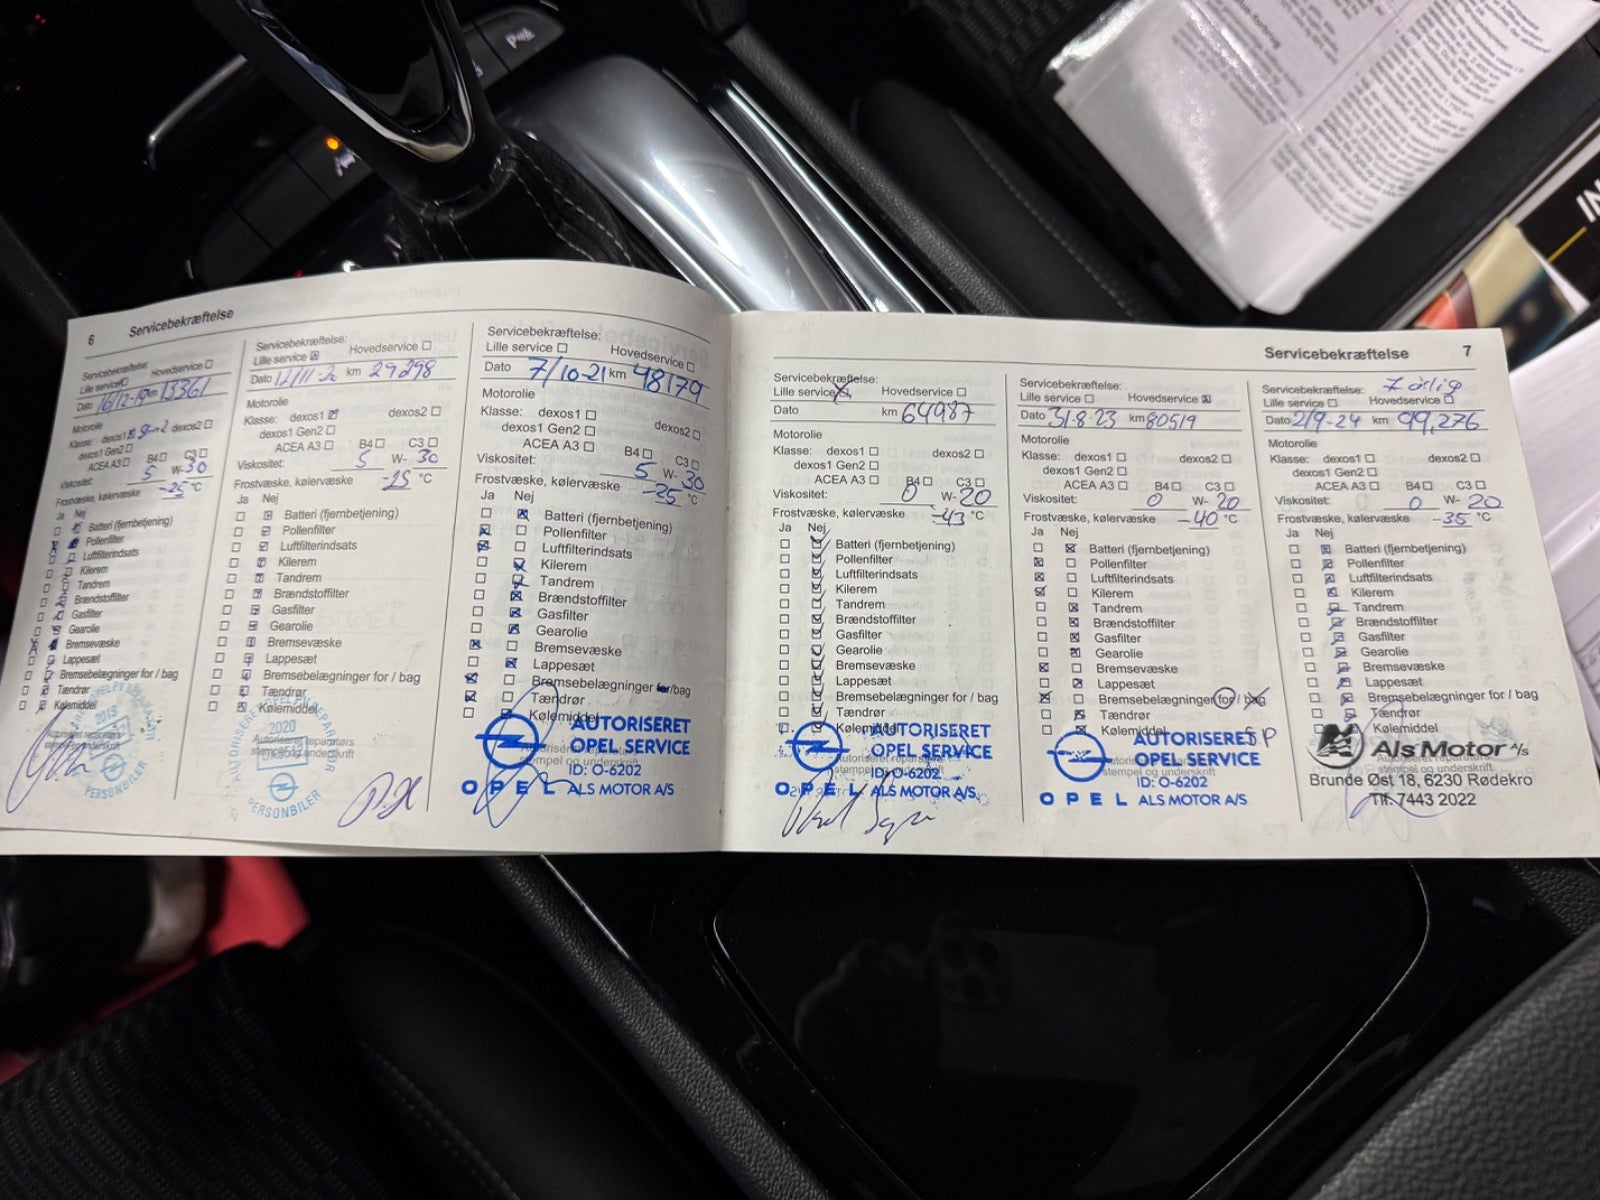 6
Servicebekræftelse
Servicebekræftelse:
Lille service Hovedservice
Dato 16/12-19 km 13361
Motorolie
Klasse: dexos1 gen2 dexos2
dexos1 Gen2
ACEA A3 B4 C3
Viskositet: 5 W- 30
Frostvæske, kølervæske -25 °C
Ja Nej
Batteri (fjernbetjening)
Pollenfilter
Luftfilterindsats
Kilerem
Tandrem
Brændstoffilter
Gasfilter
Gearolie
Bremsevæske
Lappesæt
Bremsebelægninger for / bag
Tændrør
Kølemiddel
2019
Autoriseret reparatørs
stempel og underskrift
PERSONBILER
Servicebekræftelse:
Lille service Hovedservice
Dato 12/11-20 km 29298
Motorolie
Klasse: dexos1 dexos2
dexos1 Gen2
ACEA A3 B4 C3
Viskositet: 5 W- 30
Frostvæske, kølervæske -25 °C
Ja Nej
Batteri (fjernbetjening)
Pollenfilter
Luftfilterindsats
Kilerem
Tandrem
Brændstoffilter
Gasfilter
Gearolie
Bremsevæske
Lappesæt
Bremsebelægninger for / bag
Tændrør
Kølemiddel
AUTORISERET OPEL REPARATØR
2020
Autoriseret reparatørs
stempel og underskrift
PERSONBILER
Servicebekræftelse:
Lille service Hovedservice
Dato 7/10-21 km 48179
Motorolie
Klasse: dexos1 dexos2
dexos1 Gen2
ACEA A3 B4 C3
Viskositet: 5 W- 30
Frostvæske, kølervæske -25 °C
Ja Nej
Batteri (fjernbetjening)
Pollenfilter
Luftfilterindsats
Kilerem
Tandrem
Brændstoffilter
Gasfilter
Gearolie
Bremsevæske
Lappesæt
Bremsebelægninger for/bag
Tændrør
Kølemiddel
AUTORISERET
OPEL SERVICE
stempel og underskrift
ID: O-6202
OPEL ALS MOTOR A/S
Servicebekræftelse 7
Servicebekræftelse:
Lille service Hovedservice
Dato km 64987
Motorolie
Klasse: dexos1 dexos2
dexos1 Gen2
ACEA A3 B4 C3
Viskositet: 0 W- 20
Frostvæske, kølervæske -43 °C
Ja Nej
Batteri (fjernbetjening)
Pollenfilter
Luftfilterindsats
Kilerem
Tandrem
Brændstoffilter
Gasfilter
Gearolie
Bremsevæske
Lappesæt
Bremsebelægninger for / bag
Tændrør
Kølemiddel
AUTORISERET
OPEL SERVICE
stempel og underskrift
ID: O-6202
OPEL ALS MOTOR A/S
Servicebekræftelse:
Lille service Hovedservice
Dato 31-8-23 km 80519
Motorolie
Klasse: dexos1 dexos2
dexos1 Gen2
ACEA A3 B4 C3
Viskositet: 0 W- 20
Frostvæske, kølervæske -40 °C
Ja Nej
Batteri (fjernbetjening)
Pollenfilter
Luftfilterindsats
Kilerem
Tandrem
Brændstoffilter
Gasfilter
Gearolie
Bremsevæske
Lappesæt
Bremsebelægninger for / bag
Tændrør
Kølemiddel
AUTORISERET SP
OPEL SERVICE
stempel og underskrift
ID: O-6202
OPEL ALS MOTOR A/S
Servicebekræftelse: 7 årlig
Lille service Hovedservice
Dato 2/9-24 km 99,276
Motorolie
Klasse: dexos1 dexos2
dexos1 Gen2
ACEA A3 B4 C3
Viskositet: 0 W- 20
Frostvæske, kølervæske -35 °C
Ja Nej
Batteri (fjernbetjening)
Pollenfilter
Luftfilterindsats
Kilerem
Tandrem
Brændstoffilter
Gasfilter
Gearolie
Bremsevæske
Lappesæt
Bremsebelægninger for / bag
Tændrør
Kølemiddel
Als Motor A/s
stempel og underskrift
Brunde Øst 18, 6230 Rødekro
Tlf. 7443 2022